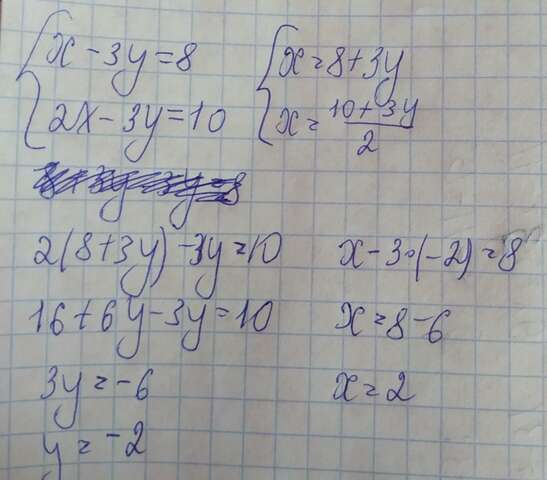 x - 3y = 8
2x - 3y = 10
x = 8 + 3y
x = (10 + 3y)/2
2(8 + 3y) - 3y = 10
16 + 6y - 3y = 10
3y = -6
y = -2
x - 3 · (-2) = 8
x = 8 - 6
x = 2